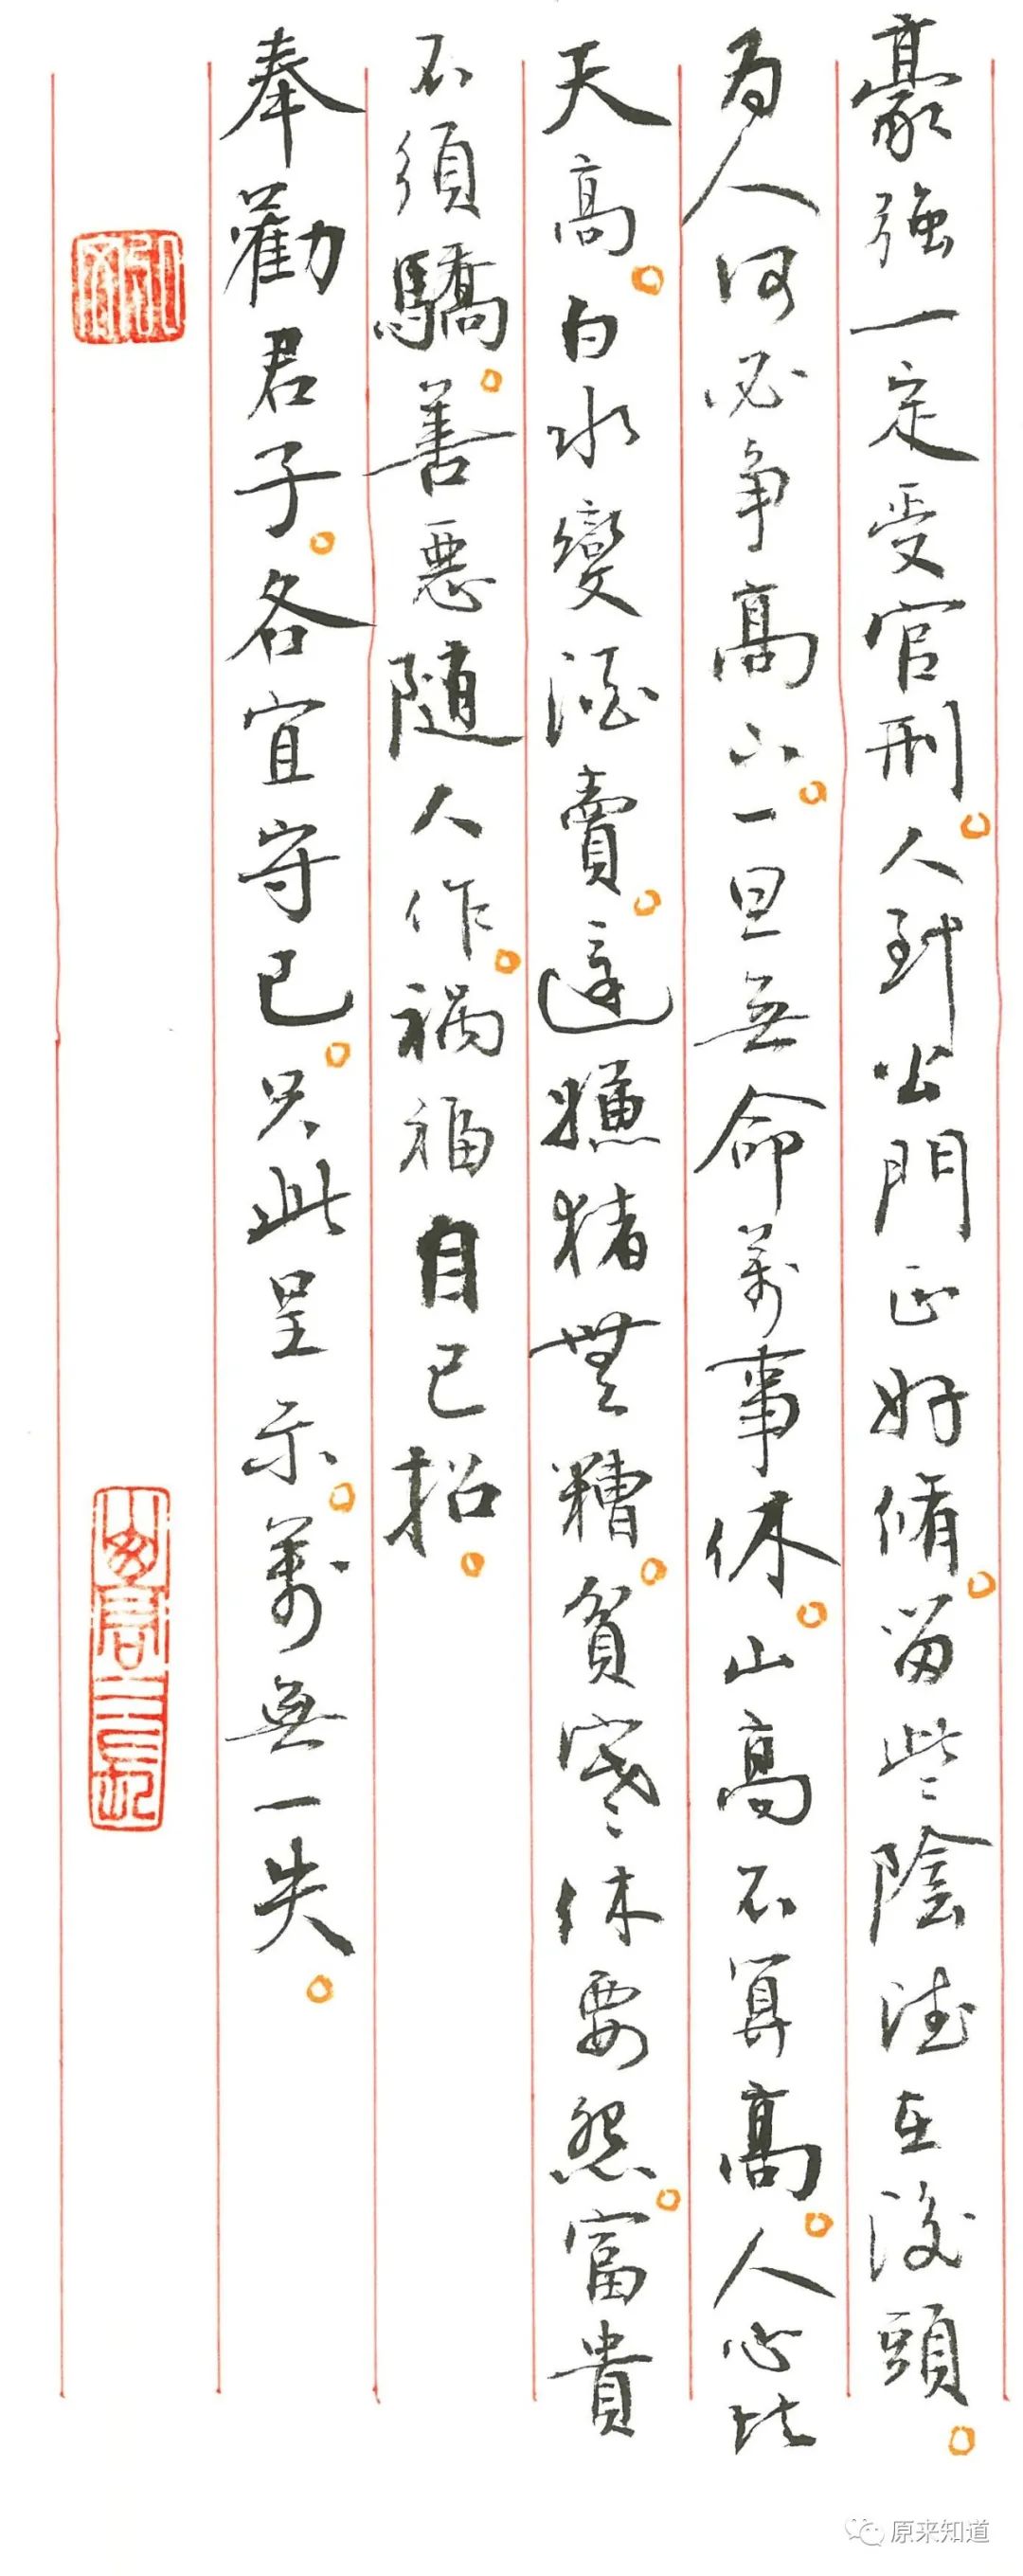 豪強一定受官刑。人到公門正好脩。留些陰德在後頭。
為人何必争高下。一旦無命萬事休。山高不算高。人心比
天高。白水變酒賣。還嫌猪無糟。貧寒休要怨。富貴
不須驕。善惡隨人作。禍福自己招。
奉勸君子。各宜守己。只此呈示。萬無一失。
原来知道